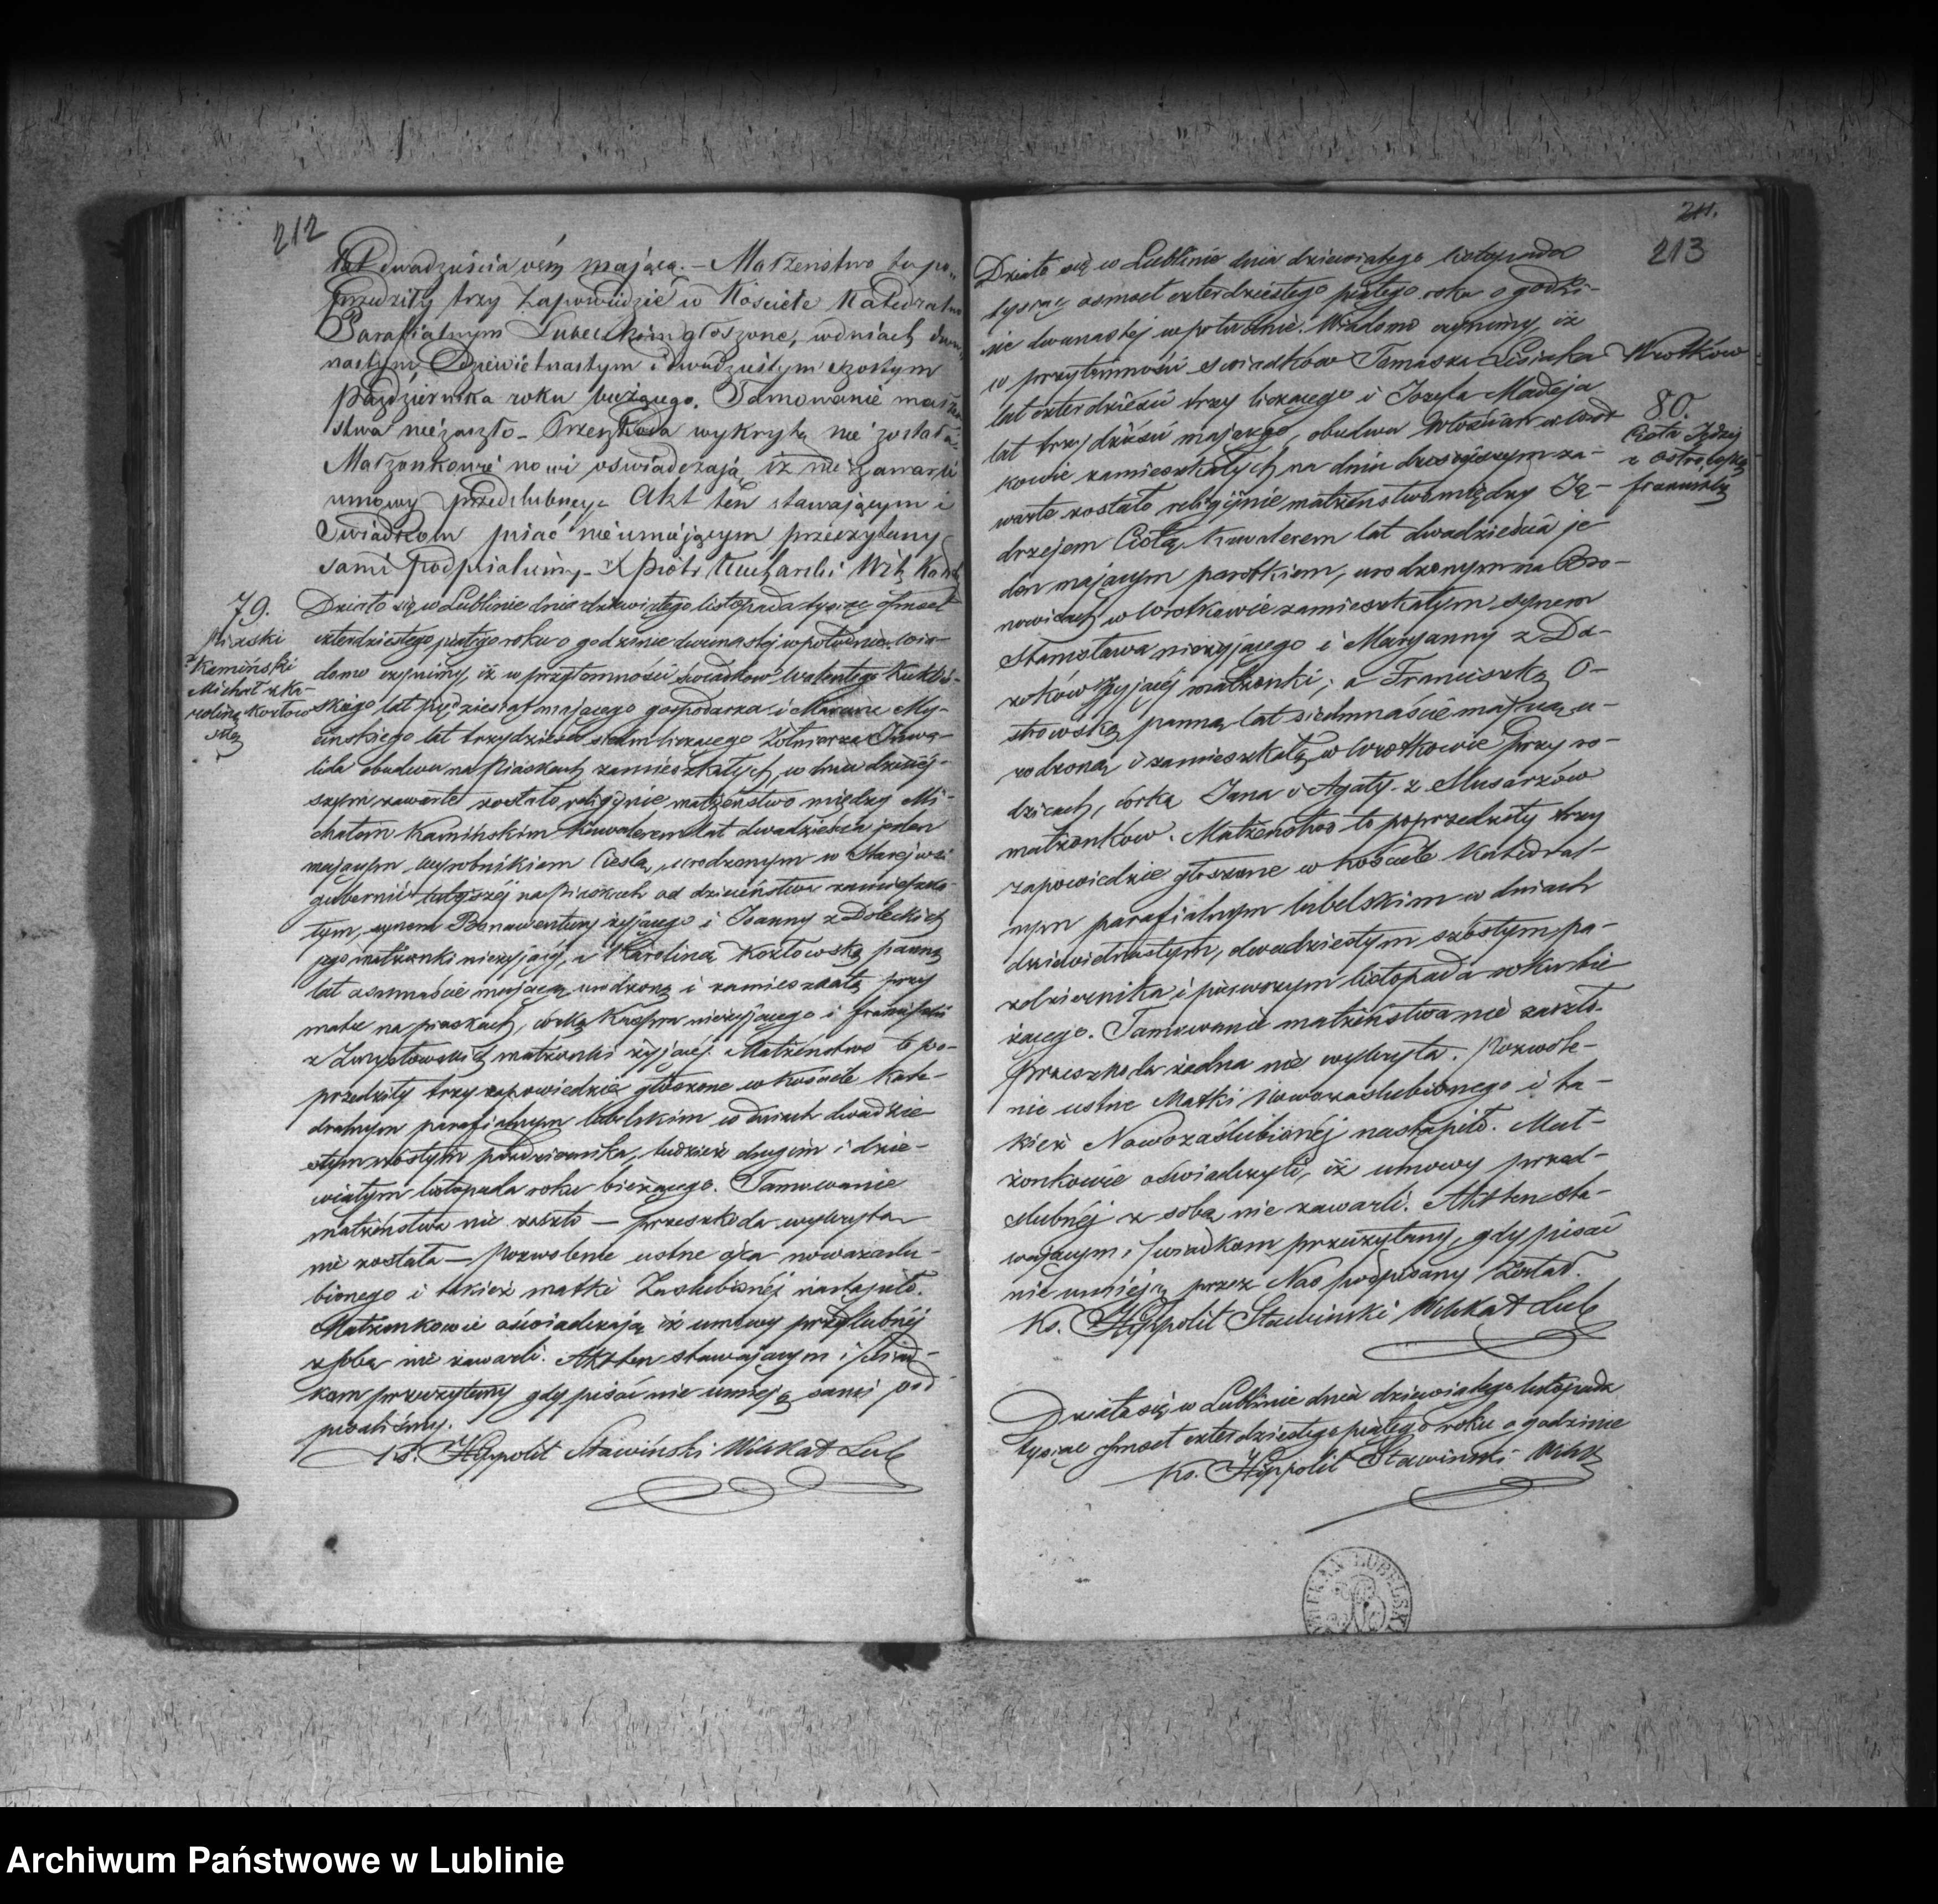 212
lat dwadzieścia ośm mającą. – Małżeństwo to po-
przedziły trzy Zapowiedzie w Kościele Katedralno
Parafialnym Lubelskim głoszone, w dniach dwu-
nastym, Dziewietnastym i dwudziestym szostym
Października roku bieżącego. Tamowanie małżeń-
stwa niezaszło – Przeszkoda wykrytą nie została –
Małżonkowie nowi oświadczają iż nie zawarli
umowy przedślubney. Akt ten stawającym i
Swiadkom pisać nieumiejącym przeczytany
sami podpisaliśmy – X Piotr Kucharski Wik Kated
79.
Piaski
Kamiński
Michał z Ka-
roliną Kozłow-
ską
Działo się w Lublinie dnia dziewiątego listopada tysiąc ośmset
czterdziestego piątego roku o godzinie dwunastej w południe. Wia-
domo czynimy, iż w przytomności świadków Walentego
skiego lat pięćdziesiąt mającego gospodarza i Marcina My-
cinskiego lat trzydzieści siedm liczącego Żołnierza Inwa-
lida obudwu na Piaskach zamieszkałych, w dniu dzisiej-
szym zawarte zostało religijnie małżeństwo między Mi-
chałem Kamińskim Kawalerem lat dwadzieścia jeden
mającym wyrobnikiem Cieslą, urodzonym w Starejwsi
gubernii tutejszej na Piaskach od dzieciństwa zamieszka-
tym, synem Bonawentury żyjącego i Joanny z Doleckich
jego małżonki nieżyjącej, a Karoliną Kozłowską panną
lat ośmnaście mającą urodzoną i zamieszkałą przy
matce na piaskach, córką Kacpra nieżyjącego i Franciszki
z małżonki żyjącej. Małżeństwo to po-
przedziły trzy zapowiedzie głoszone w Kościele Kate-
dralnym parafialnym lubelskim w dniach dwudzie-
stym szóstym października, tudzież drugim i dzie-
wiątym listopada roku bieżącego. Tamowanie
małżeństwa nie zaszło – przeszkoda wykryta
nie została – Pozwolenie ustne ojca nowozaślu-
bionego i takież matki Zaslubionéj nastąpiło.
Małżonkowie oświadczają iż umowy przedślubnéj
z sobą nie zawarli. Akt ten stawającym i świad-
kom przeczytany gdy pisać nie umieją sami pod-
pisaliśmy.
Ks. Hippolit Stawiński Wik Kat Lub
211.
213
Działo się w Lublinie dnia dziewiątego listopada
tysiąc osmset czterdziestego piątego roku o godzi-
nie dwunastej w południe. Wiadomo czynimy, iż
w przytomności swiadków Tomasza Lisiaka
lat czterdzieści trzy liczącego i Józefa Madeja
lat trzydzieści mającego, obudwu Włościan w Wrot-
kowie zamieszkałych na dniu dzisiejszym za-
warte zostało religijnie małżeństwo między Ję-
drzejem Ciołą Kawalerem lat dwadzieścia je-
den mającym parobkiem, urodzonym na Bro-
nowicach w Wrotkowie zamieszkałym synem
Stanisława nieżyjącego i Maryanny z Du-
żyjącej małżonki; a Franciszką O-
strowską panną lat siedmnaście mającą u-
rodzoną i zamieszkałą w Wrotkowie przy ro-
dzicach, córką Jana i Agaty z Slusarzów
małżonków. Małżeństwo to poprzedziły trzy
zapowiedzie głoszone w kościele Katedral-
nym parafialnym lubelskim w dniach
dziewietnastym, dwudziestym szóstym pa-
ździernika i pierwszym listopada roku bie-
żącego. Tamowanie małżeństwa nie zaszło.
przeszkoda żadna nie wykryta. Pozwole-
nie ustne Matki Nowozaślubionego i ta-
kież Nowozaślubionéj nastąpiło. Mał-
żonkowie oświadczyli, iż umowy przed-
ślubnéj z sobą nie zawarli. Akt ten sta-
wającym i świadkom przeczytany, gdy pisać
nie umieją przez Nas podpisany Został.
Ks. Hippolit Stawinski Wik Kat Lub
Wrotków
80.
Cioła Jędrzej
z Ostrowską
Franciszką
Działo się w Lublinie dnia dziewiątego listopada
tysiąc ośmset czterdziestego piątego roku o godzinie
Ks. Hippolit Stawinski Wik K
Archiwum Państwowe w Lublinie